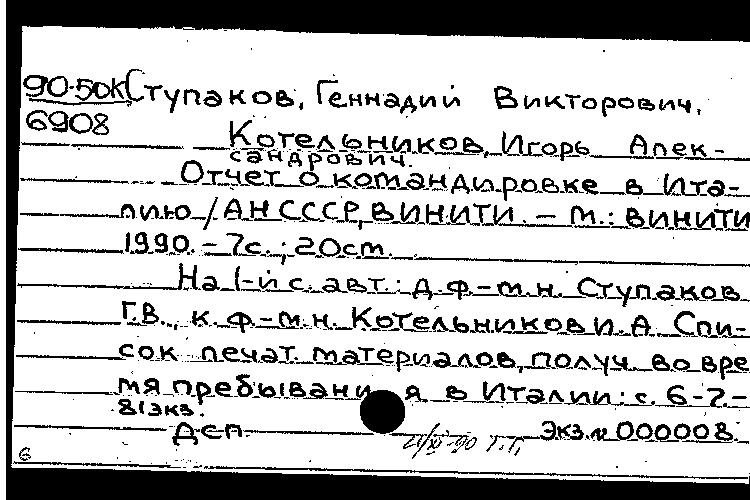 90-50К Ступаков, Геннадий Викторович,
6908
Котельников, Игорь Алек-
сандрович.
Отчет о командировке в Ита-
лию / АН СССР, ВИНИТИ. – М.: ВИНИТИ
1990. – 7с.; 20см.
На 1-й с. авт.: д.ф-м.н. Ступаков
Г.В., к.ф-м.н. Котельников И.А. Спи-
сок печат. материалов, получ. во вре
мя пребывания в Италии: с. 6-7.-
81экз.
ДСП.
Экз. № 000008
90 Т.Т,
6